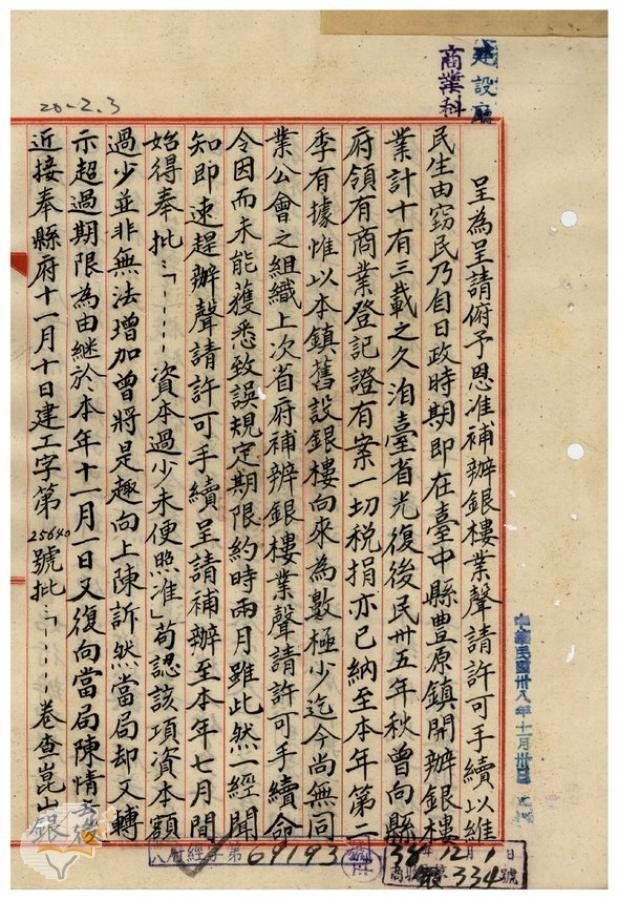 建設廳
商業科
20-2.3
呈為呈請俯予恩准補辦銀樓業聲請許可手續以維
民生由竊民乃自日政時期即在臺中縣豊原鎮開辦銀樓
業計十有三載之久洎臺省光復後民卅五年秋曾向縣
府領有商業登記證有案一切稅捐亦已納至本年第二
季有據惟以本鎮舊設銀樓向來為數極少迄今尚無同
業公會之組織上次省府補辦銀樓業聲請許可手續命
令因而未能獲悉致誤規定期限約時兩月雖此然一經聞
知即速趕辦聲請許可手續呈請補辦至本年七月間
始得奉批:「-----資本過少未便照准」苟認該項資本額
過少並非無法增加曾將是趣向上陳訴然當局却又轉
示超過期限為由繼於本年十一月一日又復向當局陳情云後
近接奉縣府十一月十日建工字第25640號批:「----卷查崑山
銀
中華民國卅八年十一月卅日
府經字第69193號
38年12月1日
334號